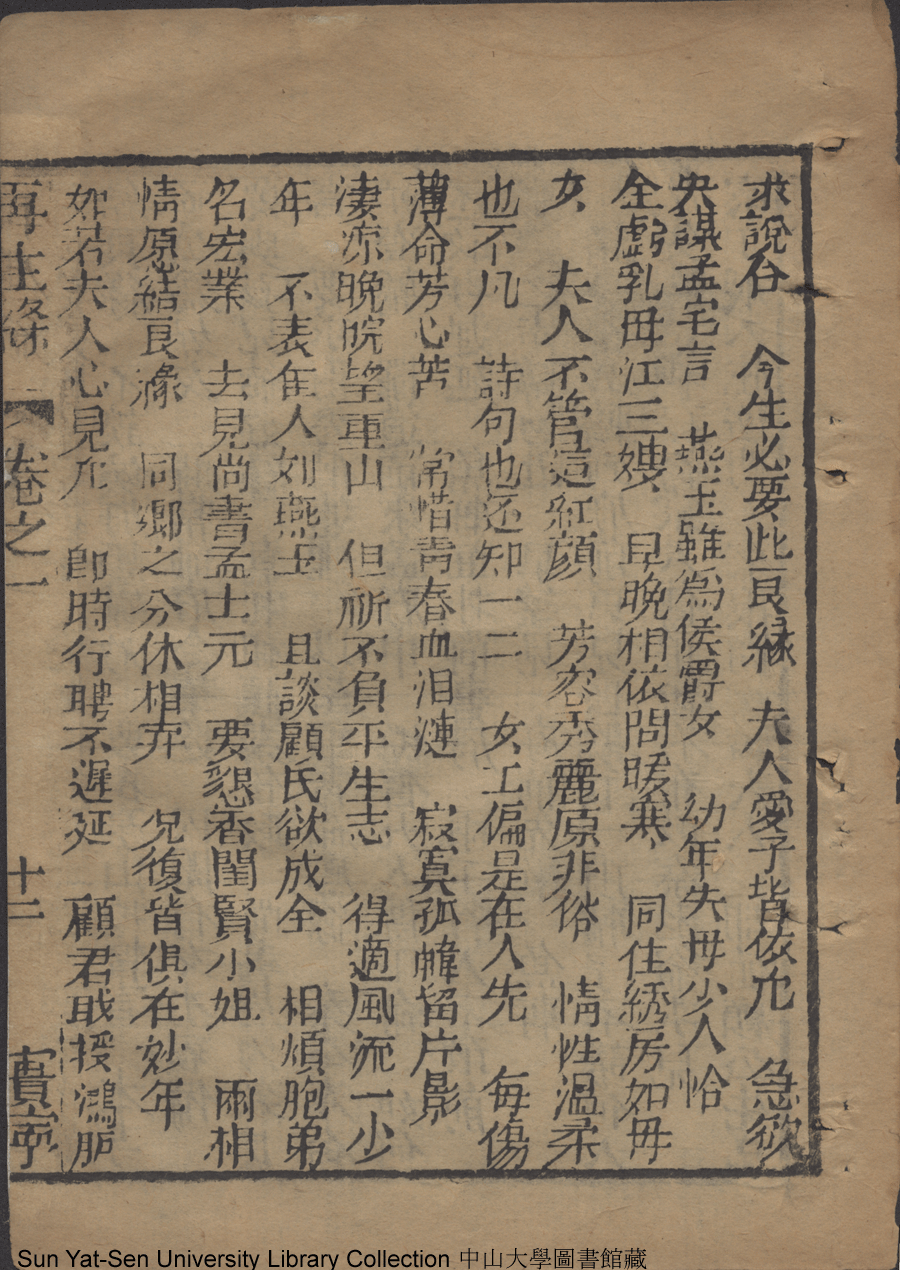 求說合　今生必要此良緣　夫人愛子皆依允　急欲
央謀孟宅言　燕玉雖為侯爵女　幼年失毋少人恰
全虧乳毋江三嫂　早晚相依問暖寒　同住綉房如毋
女　夫人不管這紅顏　芳容秀麗原非俗　情性温柔
也不凡　詩句也还知一二　女工偏是在人先　每傷
薄命芳心苦　常惜青春血泪漣　寂寞孤幃留片影
淒凉晚院望重山　但祈不負平生志　得適風流一少
年　不表隹人如燕玉　且談顧氏欲成全　相煩胞弟
名宏業　去見尚書孟士元　要懇香閨賢小姐　兩相
情原結良緣　同鄉之分休相弃　况復皆俱在妙年
如若夫人心見允　即時行聘不遲延　顧君戢授鴻胪
再生緣　卷之一　十二　寶寧
Sun Yat-Sen University Library Collection 中山大學圖書館藏